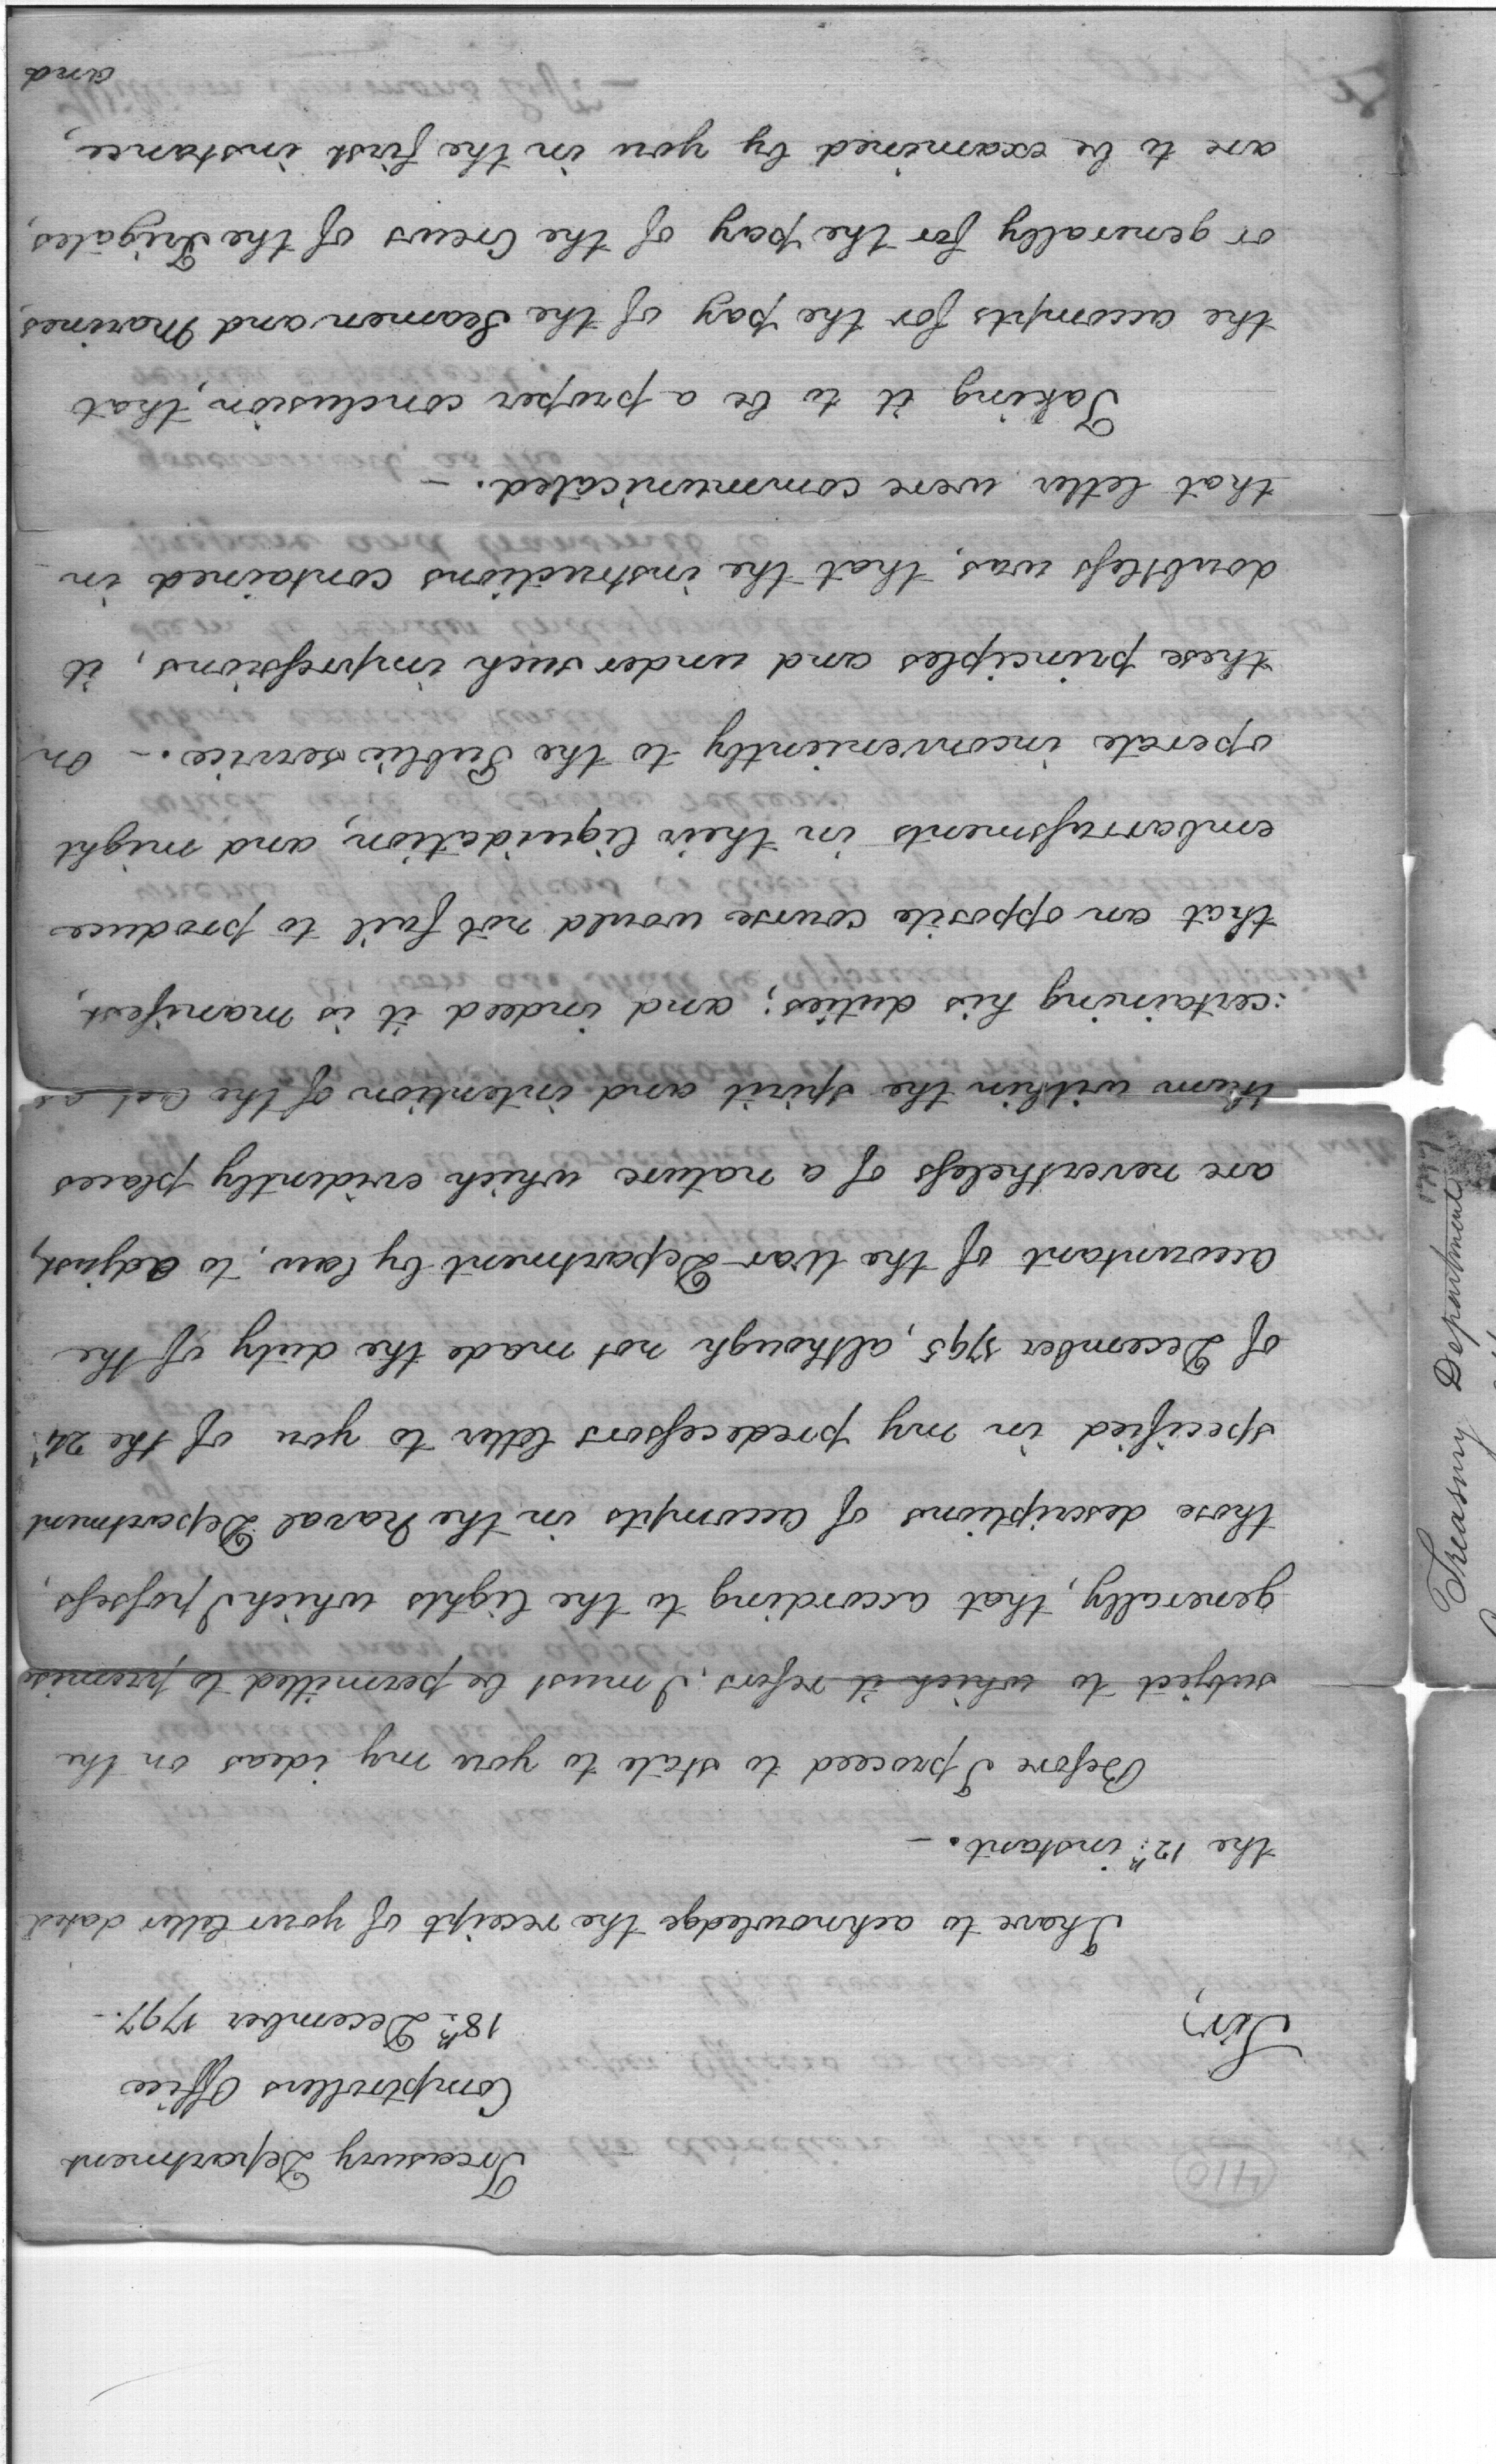 410
Treasury Department
Comptrollers Office
18th December 1797.-
Sir,
I have to acknowledge the receipt of your letter dated
the 12th instant. -
Before I proceed to state to you my ideas on the
subject to which it refers, I must be permitted to premise
generally, that according to the lights which I possess,
those descriptions of accompts in the Naval Department
specified in my predecessors letter to you of the 24th
of December 1795, although not made the duty of the
Accountant of the War Department by law, to adjust,
are nevertheless of a nature which evidently places
them within the spirit and intention of the act as
:certaining his duties; and indeed it is manifest,
that an opposite course would not fail to produce
embarrassments in their liquidation, and might
operate inconveniently to the Public service. - On
these principles and under such impressions, it
doubtless was, that the instructions contained in
that letter were communicated. -
Taking it to be a proper conclusion, that
the accompts for the pay of the Seamen and Marines,
or generally for the pay of the Crews of the Frigates,
are to be examined by you in the first instance,
and
William Simmons Esqr. -
Treasury Department